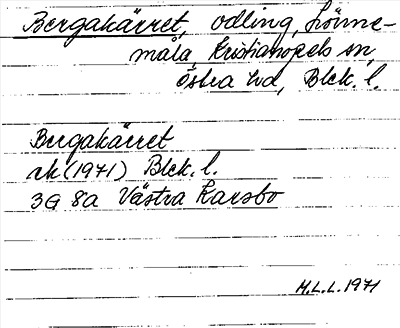 Bergakärret, odling, Hörnne-
måla, Kristianopels sn,
Östra hd, Blek. l.
Bergakärret
rk (1971) Blek. l.
3G 8a Västra Karsbo
M.L.L. 1971